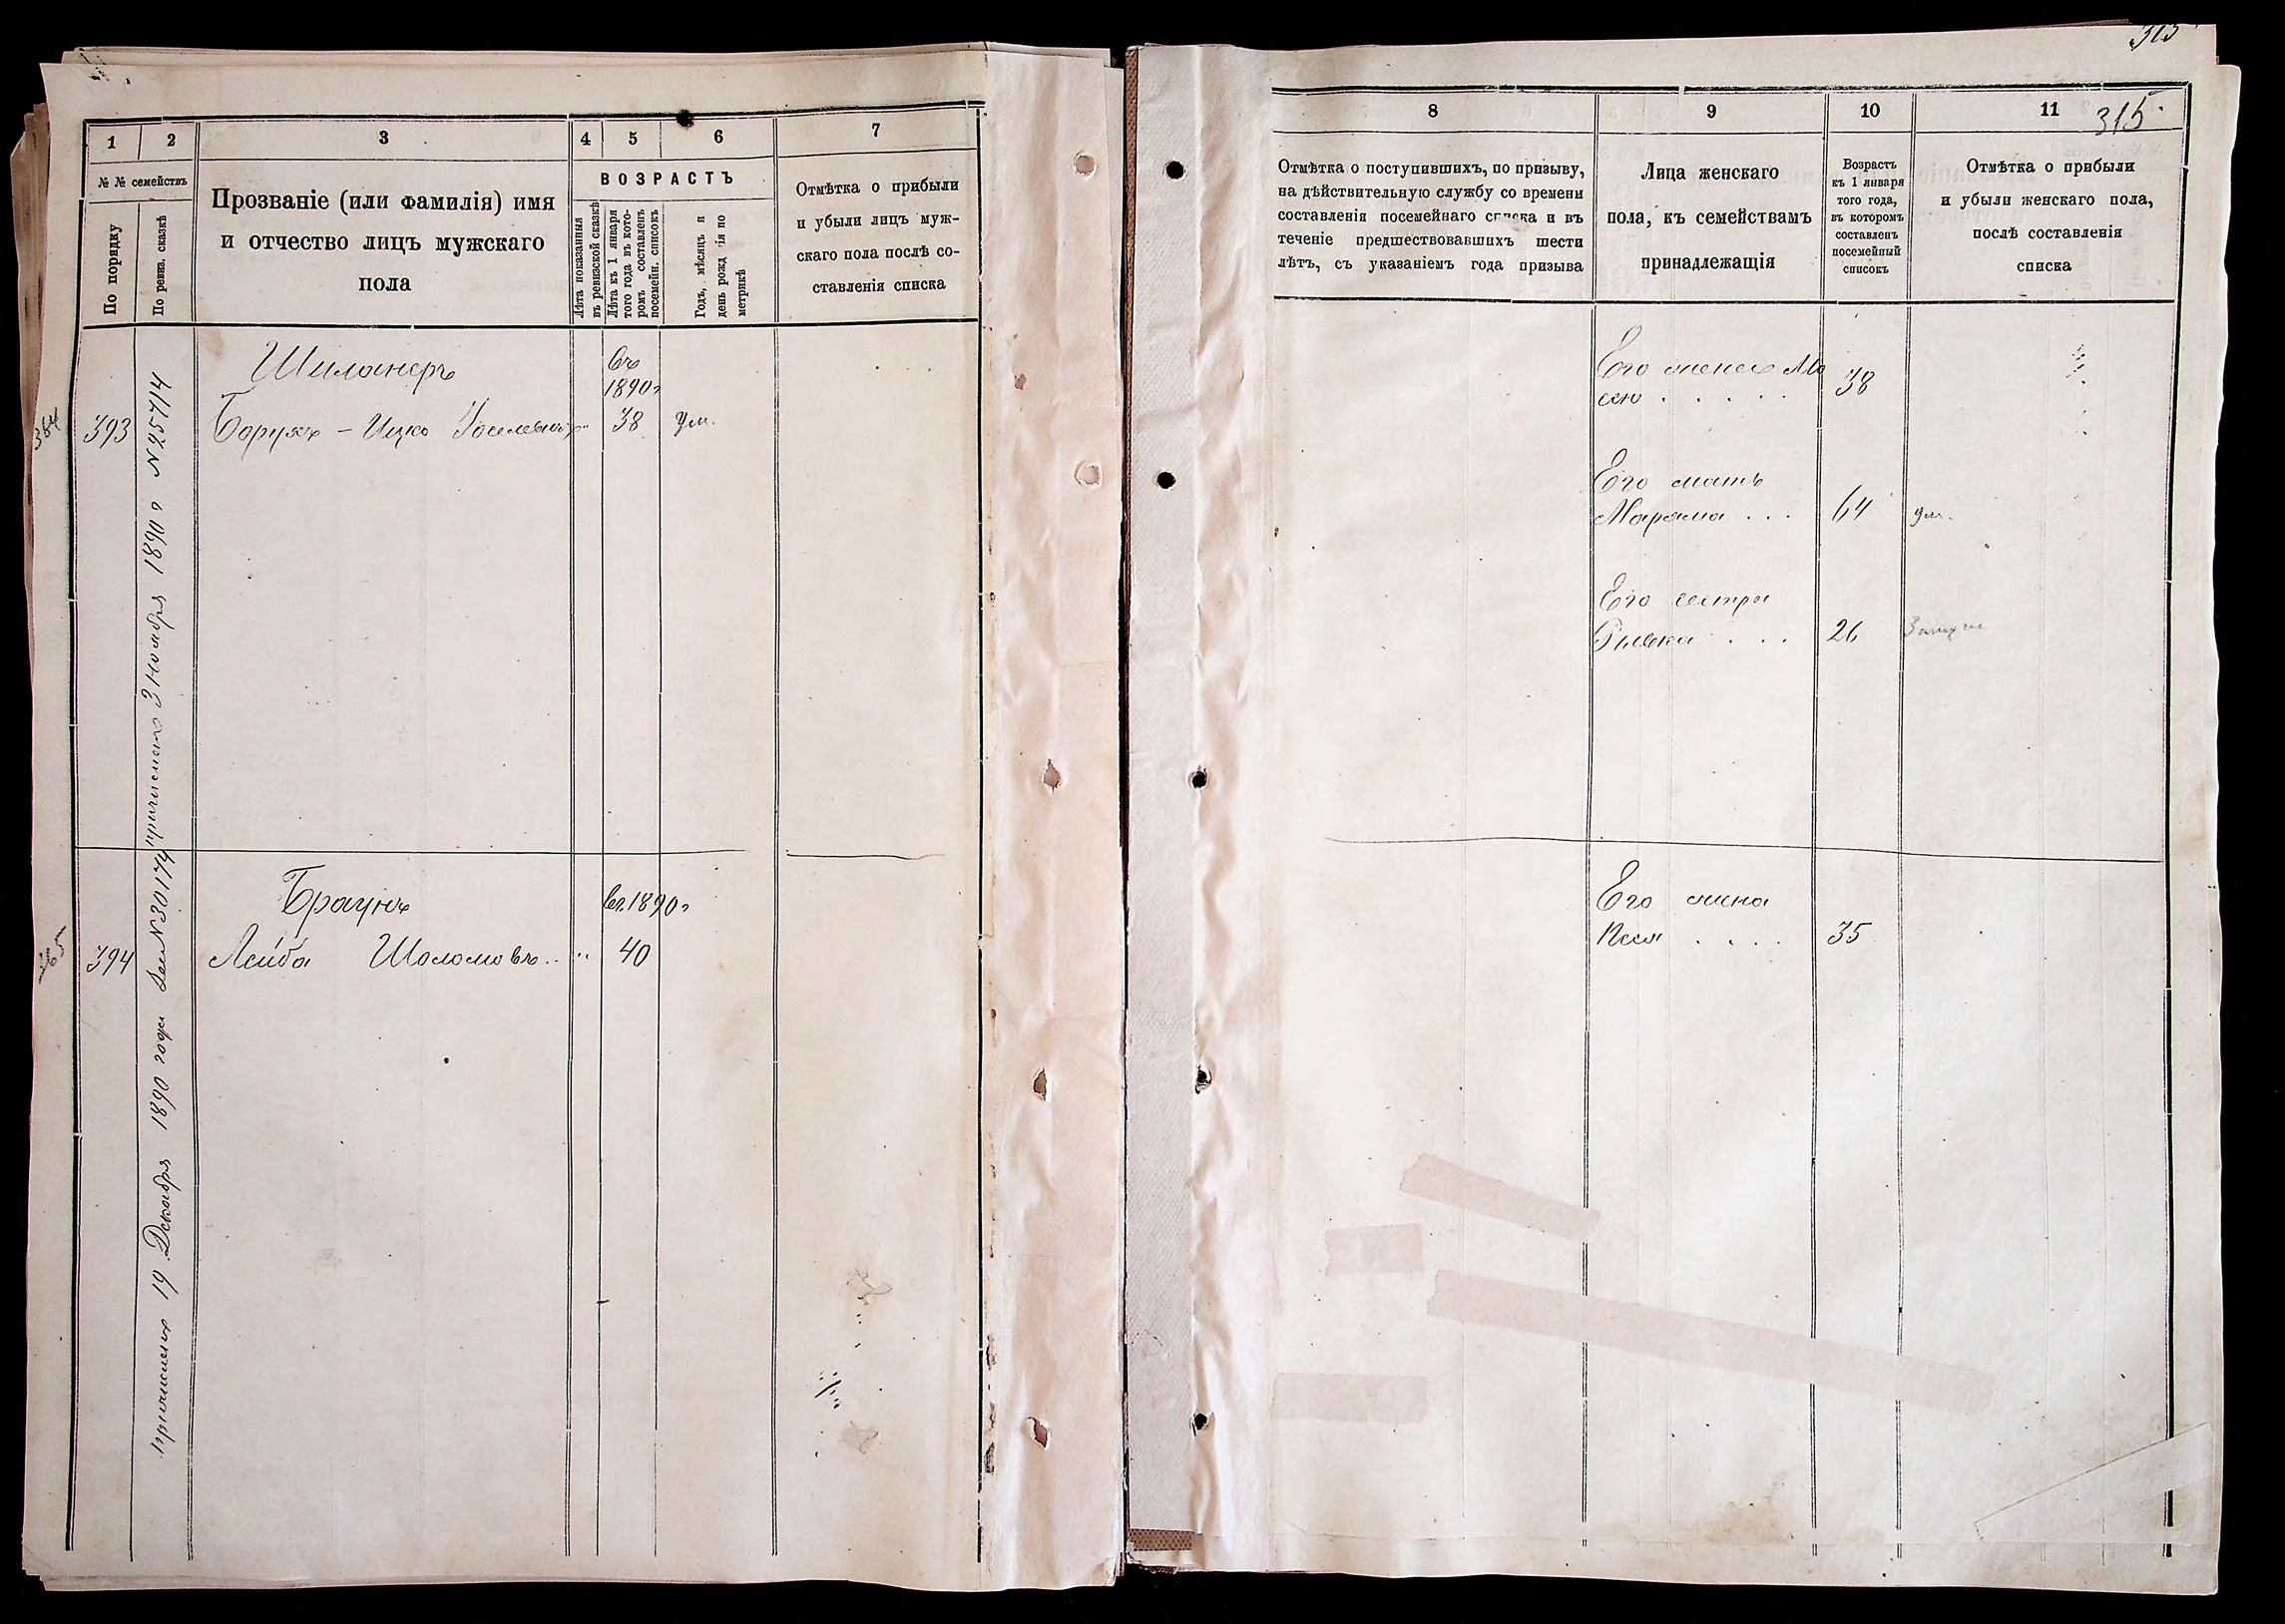 315
1
2
3
4
5
6
7
№ № семействъ
По порядку
По ревиз. сказкѣ
Прозваніе (или фамилія) имя
и отчество лицъ мужскаго
пола
ВОЗРАСТЪ
Лѣта показанныя
въ ревизской сказкѣ
Лѣта къ 1 января
того года въ кото-
ромъ составленъ
посемейн. списокъ
Годъ, мѣсяцъ и
день рожд ія по
метрикѣ
Отмѣтка о прибыли
и убыли лицъ муж-
скаго пола послѣ со-
ставленія списка
364
393
причислено 3 Ноября 1890 г N 25714
Шиланеръ
Борухъ - Ицко
въ
1890г
38
ум.
394
причислен 19 Декабря 1890 года N 30174
Браунъ
Лейба Шоломовъ..
въ 1890г
40
8
9
10
11
315.
Отмѣтка о поступившихъ, по призыву,
на дѣйствительную службу со времени
составленія посемейнаго списка и въ
теченіе предшествовавшихъ шести
лѣтъ, съ указаніемъ года призыва
Лица женскаго
пола, къ семействамъ
принадлежащія
Возрастъ
къ 1 января
того года,
въ которомъ
составленъ
посемейный
списокъ
Отмѣтка о прибыли
и убыли женскаго пола,
послѣ составленія
списка
Его жена
38
Его мать
Маряма . . .
64
ум.
Его сестра
Ривка . . .
26
Замуж
Его жена
Песя . . . .
35